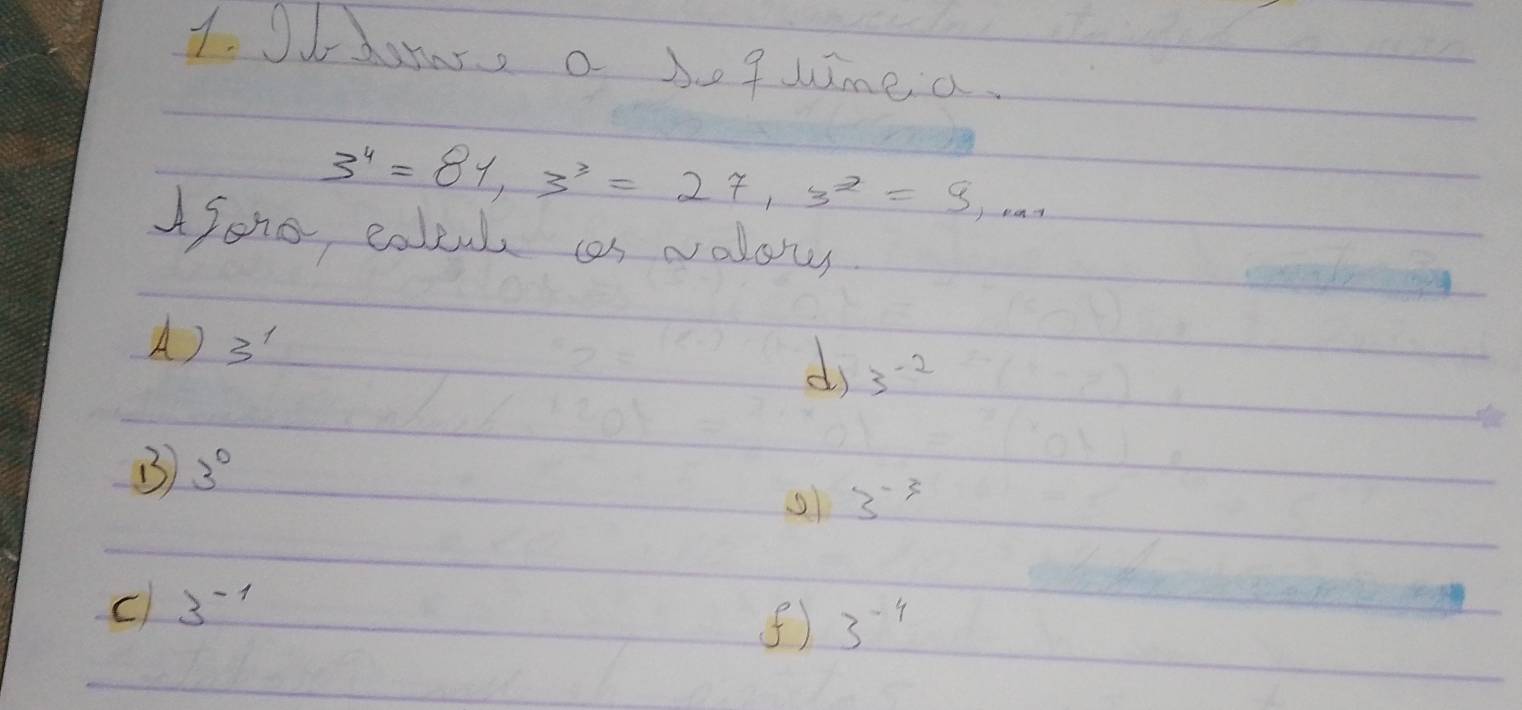 1. Observe a sequência.
3⁴ = 81, 3³ = 27, 3² = 9, ...
Agora, calcule os valores.
A) 3¹
d) 3⁻²
B) 3⁰
e) 3⁻³
C) 3⁻¹
f) 3⁻⁴